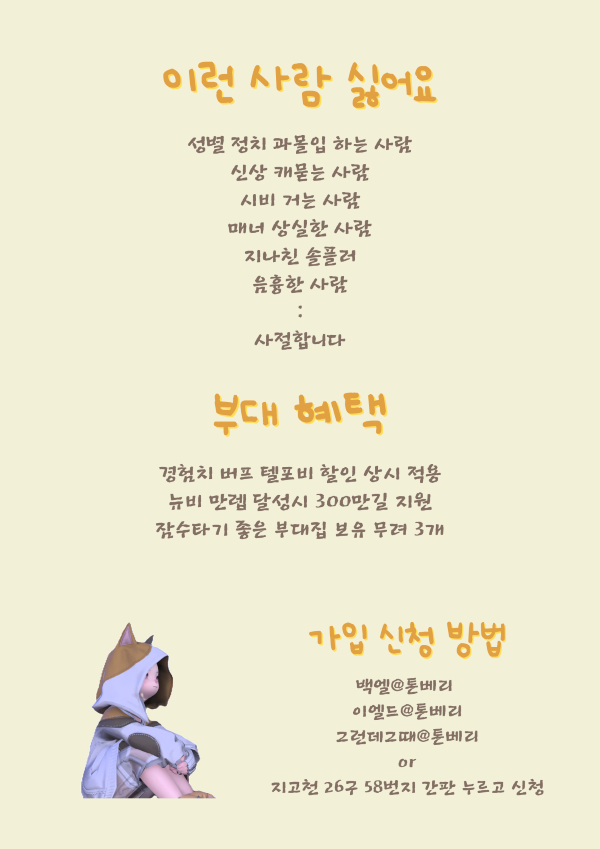 이런 사람 싫어요
성별 정치 과몰입 하는 사람
신상 캐묻는 사람
시비 거는 사람
매너 상실한 사람
지나친 솔플러
음흉한 사람
:
사절합니다
부대 혜택
경험치 버프 텔포비 할인 상시 적용
뉴비 만렙 달성시 300만길 지원
잠수타기 좋은 부대집 보유 무려 3개
가입 신청 방법
백엘@톤베리
이엘드@톤베리
그런데그때@톤베리
or
지고천 26구 58번지 간판 누르고 신청